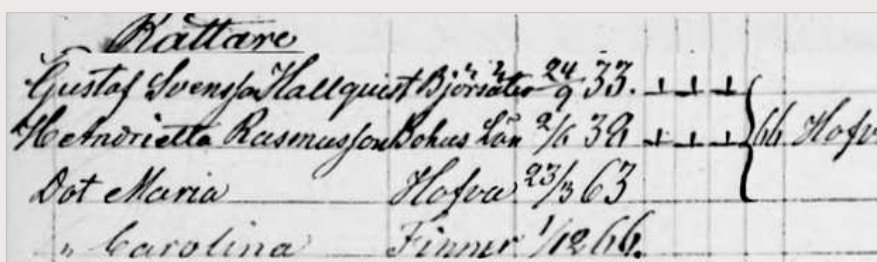 Rättare
Gustaf Svensson Hallquist Björsäter 24/9 33.
H Andrietta Rasmusson Bohus Län 2/6 39 66 Hofv
Dot Maria Hofva 23/3 63
" Carolina Finner 1/12 66.